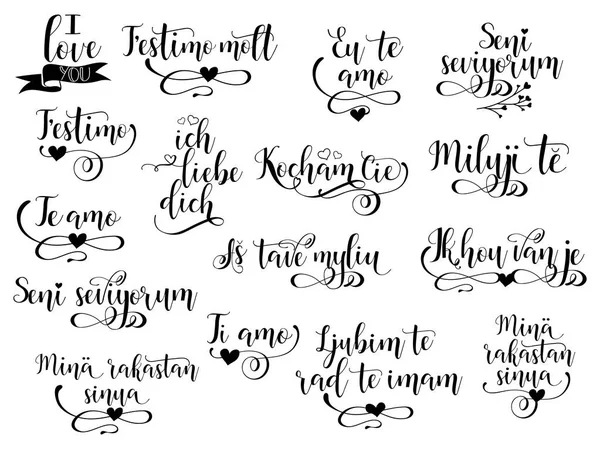 I
love
YOU
T'estimo molt
Eu te
amo
Seni
seviyorum
T'estimo
ich
liebe
dich
Kocham Cię
Miluji tě
Te amo
Aš tave myliu
Ik hou van je
Seni seviyorum
Ti amo
Ljubim te
rad te imam
Minä
rakastan
sinua
Minä rakastan
sinua